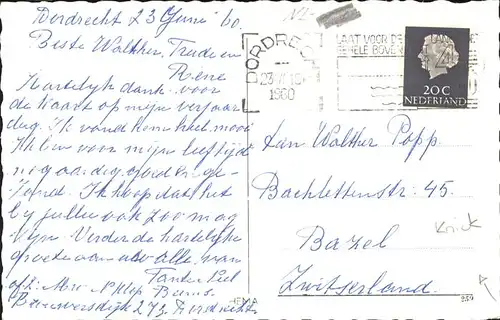 Dordrecht 23 Juni '60.
Beste Walther, Trude en
René
Hartelijk dank voor
de kaart op mijn verjaar
dag. Ik vond hem heel mooi
Ik ben voor mijn leeftijd
nog aardig goed en ge-
zond. Ik hoop dat het
bij jullie ook zoo mag
zijn. Verder de hartelijke
groeten aan u allen van
Tante Piel
afz: Mw. N. Klop Bams.
Brouwersdijk 273 Dordrecht
NL-
DORDRECHT
23 VI 16
1960
LAAT VOOR DE
GEHELE BOVEN
20C
NEDERLAND
Aan Walther Popp.
Bachlettenstr: 45.
Bazel
Knick
Zwitserland.
HEMA